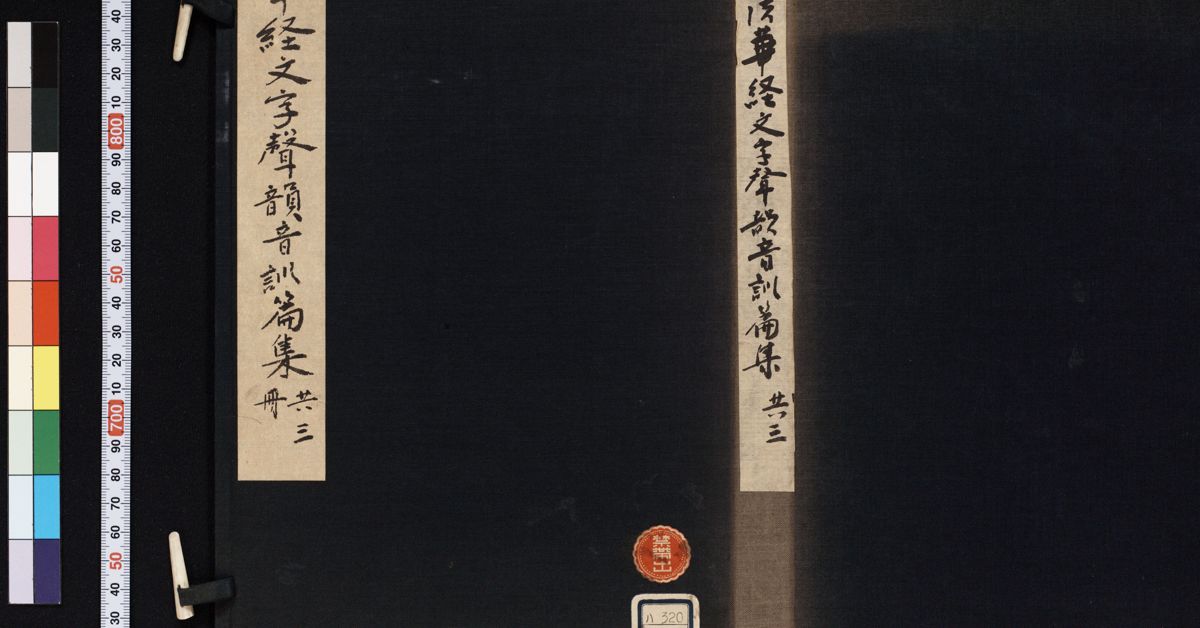 経文字聲韻音訓篇集 共三
冊
法華経文字聲韻音訓篇集 共三
禁帯出
ハ 320
40
30
20
10
800
90
80
70
60
50
40
30
20
10
700
90
80
70
60
50
40
30